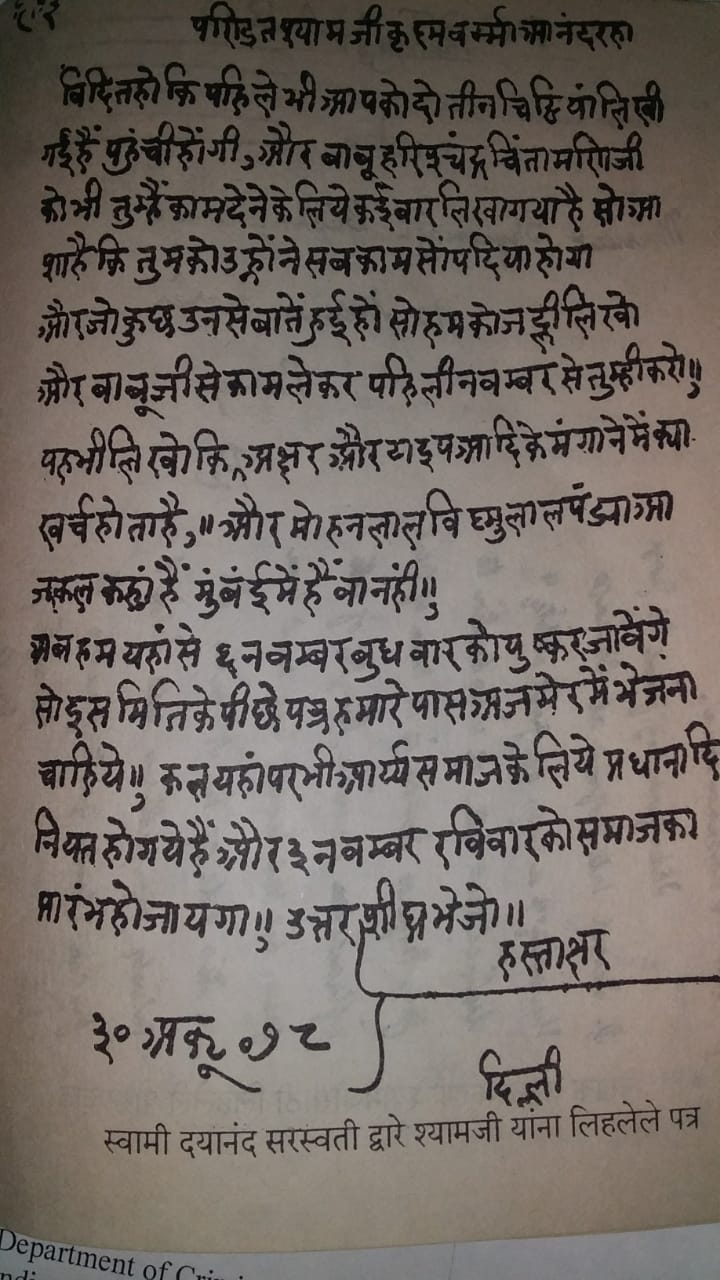 पण्डित श्यामजी कृष्ण वर्म्मा आनंद रहो
विदित हो कि पहिले भी आपको दो तीन चिट्ठियां लिखी
गई हैं पहुंची होंगी, और बाबू हरिश्चंद्र चिंतामणि जी
को भी तुम्हें काम देने के लिये कई बार लिखा गया है सो आ
शा है कि तुमको उन्होंने सब काम सोंप दिया होगा
और जो कुछ उनसे बातें हुई हों सो हमको जल्दी लिखो
और बाबूजी से काम लेकर पहिली नवम्बर से तुम्ही करो॥
यह भी लिखो कि अक्षर और टाइप आदि के मंगाने में क्या
खर्च होता है,॥ और मोहनलाल विष्णुलाल पंड्या आ
जकल कहां हैं मुंबई में हैं वा नहीं॥
अब हम यहां से ६ नवम्बर बुधवार को पुष्कर जावेंगे
सो इस मिति के पीछे पत्र हमारे पास अजमेर में भेजना
चाहिये॥ कल यहां पर भी आर्य्यसमाज के लिये प्रधानादि
नियत हो गये हैं और ३ नवम्बर रविवार को समाज का
प्रारंभ हो जायगा॥ उत्तर शीघ्र भेजो॥
हस्ताक्षर
३० अक्टू ० ७८
दिल्ली
स्वामी दयानंद सरस्वती द्वारे श्यामजी यांना लिहलेले पत्र
Department of